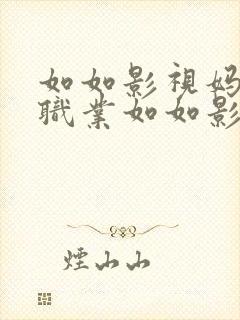 如如影視媽
職業如如影
煙山山